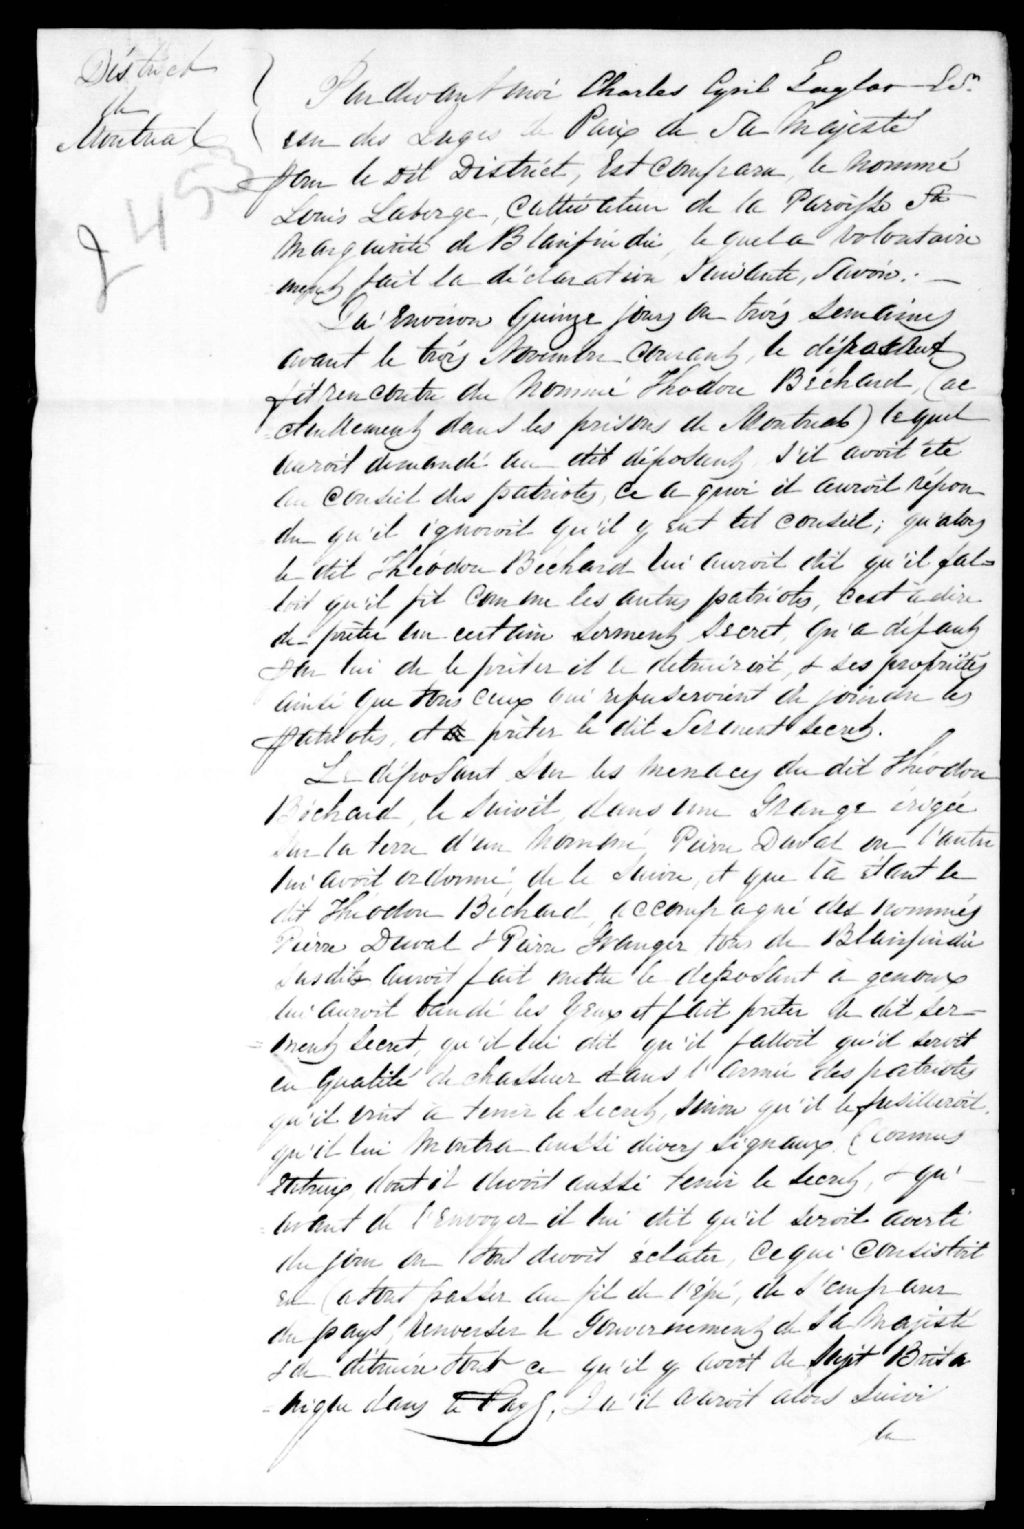 District
de
Montreal
2453
Par devant moi Charles Cyril
un des Juges de Paix de Sa Majesté
pour le dit District, Est comparu, le nommé
Louis Laberge, Cultivateur de la Paroisse Ste
Marguerite de Blairfindie, lequel a volontaire
=ment fait la déclaration Suivante, Savoir: —
Qu'environ Quinze jours ou trois Semaines
avant le trois Novembre courant, le déposant
fit rencontre du Nommé Théodore Béchard, (ac
=tuellement dans les prisons de Montreal) lequel
auroit demandé au dit déposant, s'il avoit été
au conseil des patriotes, ce a quoi il auroit répon
du qu'il ignoroit qu'il y eut tel conseil; qu'alors
le dit Théodore Béchard lui auroit dit qu'il fal=
loit qu'il fit comme les autres patriotes, c'est à dire
de prêter un certain Serment Secret, Qu'a défaut
par lui de le prêter il le detruiroit, & ses propriétés
ainsi que tous ceux qui refuseroient de joindre les
patriotes, et prêter le dit Serment Secret.
Le déposant Sur les menaces du dit Théodore
Béchard, le Suivit, dans une Grange érigée
Sur la terre d'un Nommé Pierre Duval ou l'autre
lui avoit ordonné de le Suivre, et que là étant le
dit Théodore Béchard, accompagné des nommés
Pierre Duval & Pierre Granger tous de Blairfindie
Susdit auroit fait mettre le deposant à genoux
lui auroit bandé les Yeux et fait prêter le dit Ser—
=ment Secret, qu'il lui dit qu'il falloit qu'il servit
en Qualité de chasseur dans l'armée des patriotes
qu'il vint à tenir le Secret, Sinon qu'il le fusilleroit.
qu'il lui Montra aussi divers Signaux (connus
entreux, dont il devoit aussi tenir le Secret, & qu'
avant de l'Envoyer il lui dit qu'il Seroit averti
du jour ou tout devoit éclater, Ce qui Consistoit
en (a tout passer au fil de l'épé, de S'emparer
du pays, Renverser le Gouvernement de Sa Majesté
& de détruire tout ce qu'il y avoit de Sujet Brita
=nique dans le Pays, Qu'il auroit alors Suivi
le